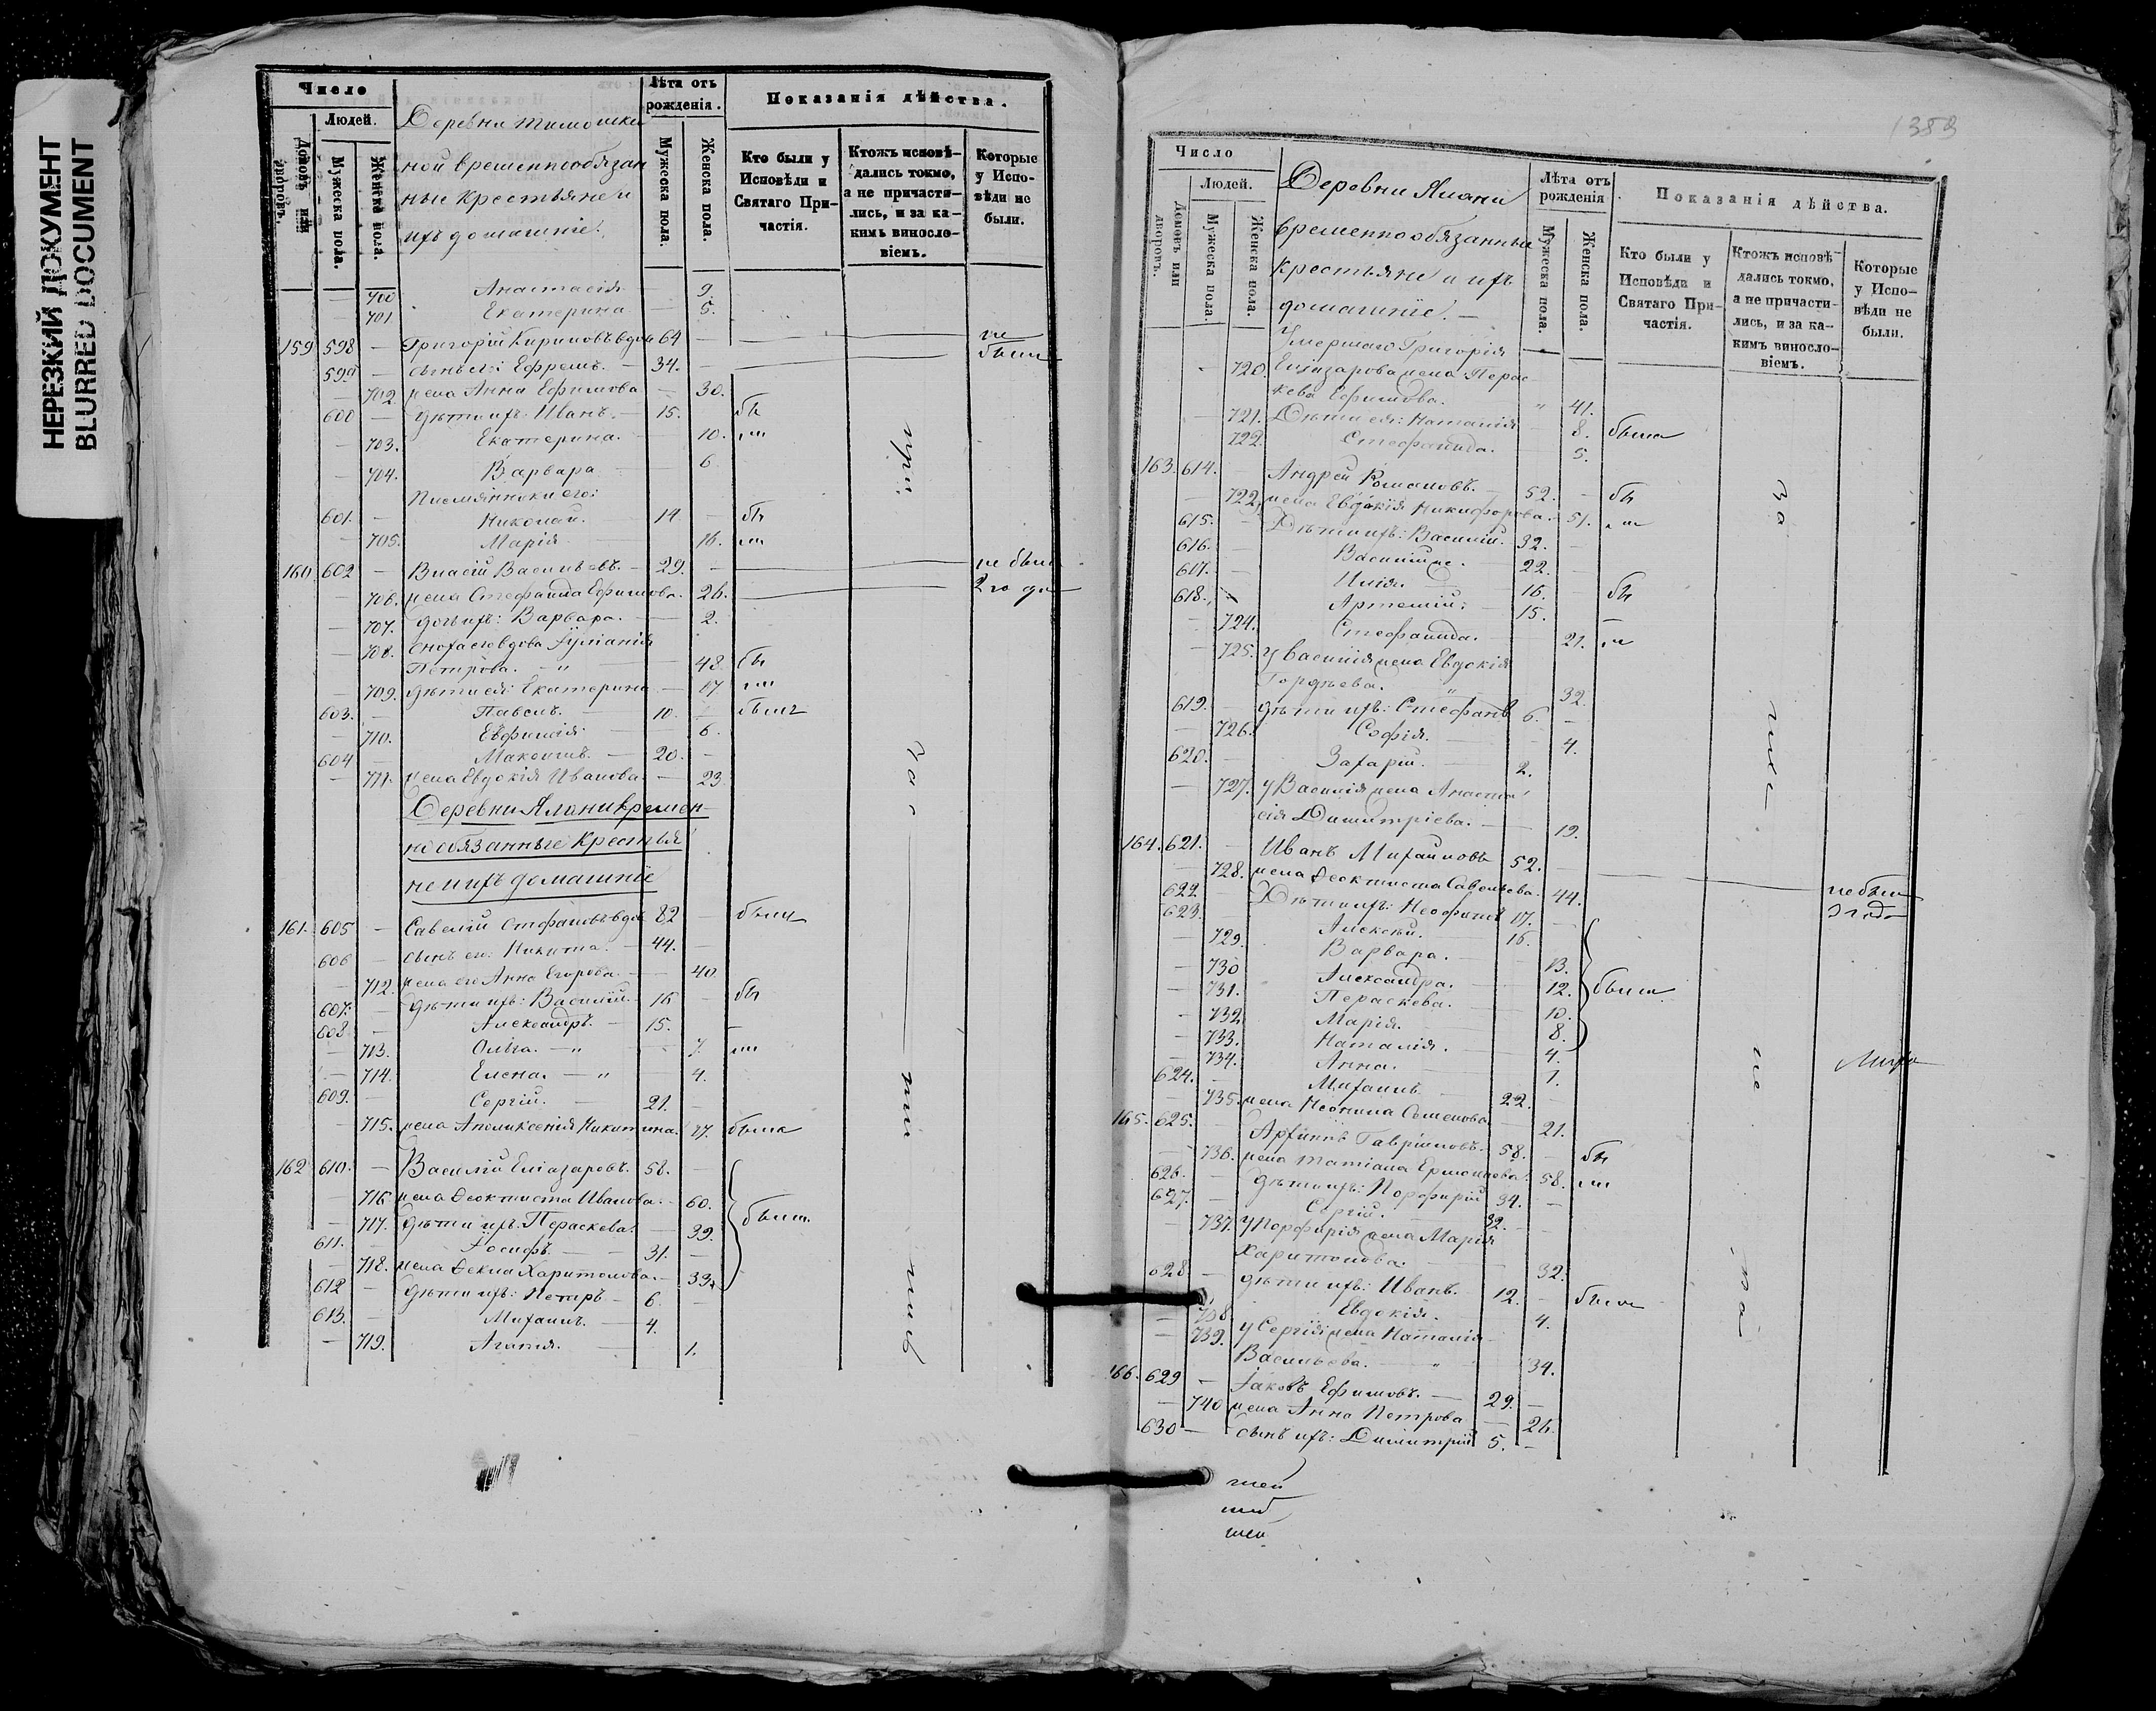 НЕРЕЗКИЙ ДОКУМЕНТ
BLURRED DOCUMENT
Число
Людей.
Домовъ или дворовъ.
Мужеска пола.
Женска пола.
Деревни
ной временнообязан
ные крестьяне и
ихъ домашніе.
Лѣта отъ рожденія.
Мужеска пола.
Женска пола.
Показанія дѣйства.
Кто были у Исповѣди и Святаго Причастія.
Ктожъ исповѣдались токмо, а не причастились, и за какимъ винословіемъ.
Которые у Исповѣди не были.
700 Анастасія 9.
701 Екатерина 5.
159 598 Григорій Кириловъ вдов 64 не
599 сынъ его Ефремъ. 34. были
702 жена Анна Ефимова 30.
600 Дѣти ихъ: Иванъ. 15. бы
703. Екатерина. 10. ли
704. Варвара 6.
Племянники его:
601. Николай. 14 бы
705. Марія 16. ли
160 602 Власій Васильевъ. 29. не были
706. жена Стефанида Ефимова. 26. 2 года
707. дочь ихъ: Варвара. 2.
708. сноха его вдова Іуліанія
Петрова. 48. бы
709. Дѣти ея: Екатерина 17 ли
603. Павелъ. 10. были
710. Евфимія 6.
604 Максимъ. 20.
711. жена Евдокія Иванова 23
Деревни Ялани времен-
нообязанные крестья
не и ихъ домашніе
161. 605 Савелій Стефановъ вдов 82 были
606 сынъ его: Никита. 44.
712. жена его Анна Егорова. 40
607. Дѣти ихъ: Василій. 16 бы
608 Александръ. 15.
713. Ольга. 7. ли
714. Елена. 4.
609. Сергій. 21.
715. жена Аполинсенія Никитина. 17. была
162 610. Василій Еліазаровъ. 58.
716 жена Ѳеоктиста Иванова. 60.
717. Дѣти ихъ: Параскева. 39. были
611. Іосифъ. 31.
718. жена Ѳекла Харитонова. 33.
612 Дѣти ихъ: Петръ. 6.
613. Михаилъ. 4.
719. Агапія. 1.
1389
Число
Людей.
Домовъ или дворовъ.
Мужеска пола.
Женска пола.
Деревни Ялани
временнообязанные
крестьяне и ихъ
домашніе.
Лѣта отъ рожденія.
Мужеска пола.
Женска пола.
Показанія дѣйства.
Кто были у Исповѣди и Святаго Причастія.
Ктожъ исповѣдались токмо, а не причастились, и за какимъ винословіемъ.
Которые у Исповѣди не были.
Умершаго Григорія
720. Еліазарова жена Парас
кева Ефимова. 41.
721. Дѣти ея: Наталія 8. были
722. Стефанида. 5.
163. 614. Андрей Романовъ. 52. бы
722 жена Евдокія Никифорова. 51. ли
615. Дѣти ихъ: Василій. 32.
616. Василій 22.
617. Илія. 16. бы
618. Артемій. 15.
724. Стефанида. 21. ли
725. у Василія жена Евдокія
Гордѣева. 32.
619. Дѣти ихъ: Стефанъ 6.
726. Софія. 4.
620. Захарій. 2.
727. у Василія жена Анаста
сія Димитріева. 19.
164. 621. Иванъ Михайловъ 52.
728. жена Ѳеоктиста Савельева. 44. не были
622. Дѣти ихъ: Неофитъ 17. 3 года
623. Алексѣй. 16.
729. Варвара. 13.
730 Александра. 12. были
731. Параскева. 10.
732 Марія. 8.
733. Наталія. 4.
734. Анна. 1.
624. Михаилъ 22.
735. жена Неонила Семенова 21.
165. 625. Архипъ Гавріиловъ. 58. бы
736. жена Татіана Ермолаева. 58. ли
626. Дѣти ихъ: Порфирій 34.
627. Сергій. 32.
737. у Порфирія жена Марія
Харитонова. 32.
628. Дѣти ихъ: Иванъ. 12. были
738 Евдокія. 4.
739. у Сергія жена Наталія
Васильева. 34.
166. 629 Іаковъ Ефимовъ. 29.
740 жена Анна Петрова 26.
630 сынъ ихъ: Димитрій 5.